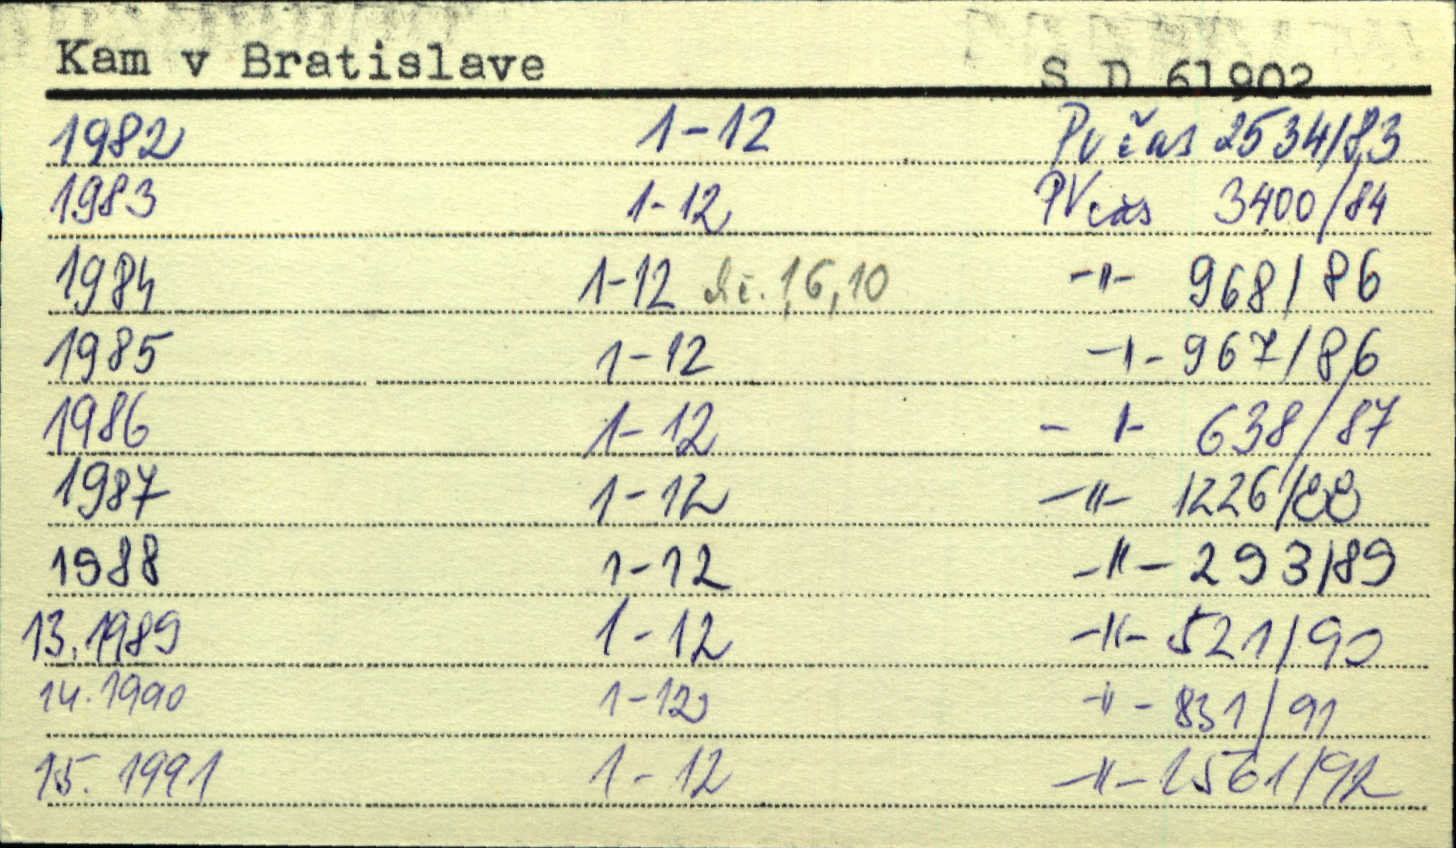 Kam v Bratislave S D 61902
1982 1-12 PV čas 2534/83
1983 1-12 PV čas 3400/84
1984 1-12 č. 1,6,10 -"- 968/86
1985 1-12 -"- 967/86
1986 1-12 -"- 638/87
1987 1-12 -"- 1226/88
1988 1-12 -"- 293/89
13. 1989 1-12 -"- 521/90
14. 1990 1-12 -"- 831/91
15. 1991 1-12 -"- 1561/92